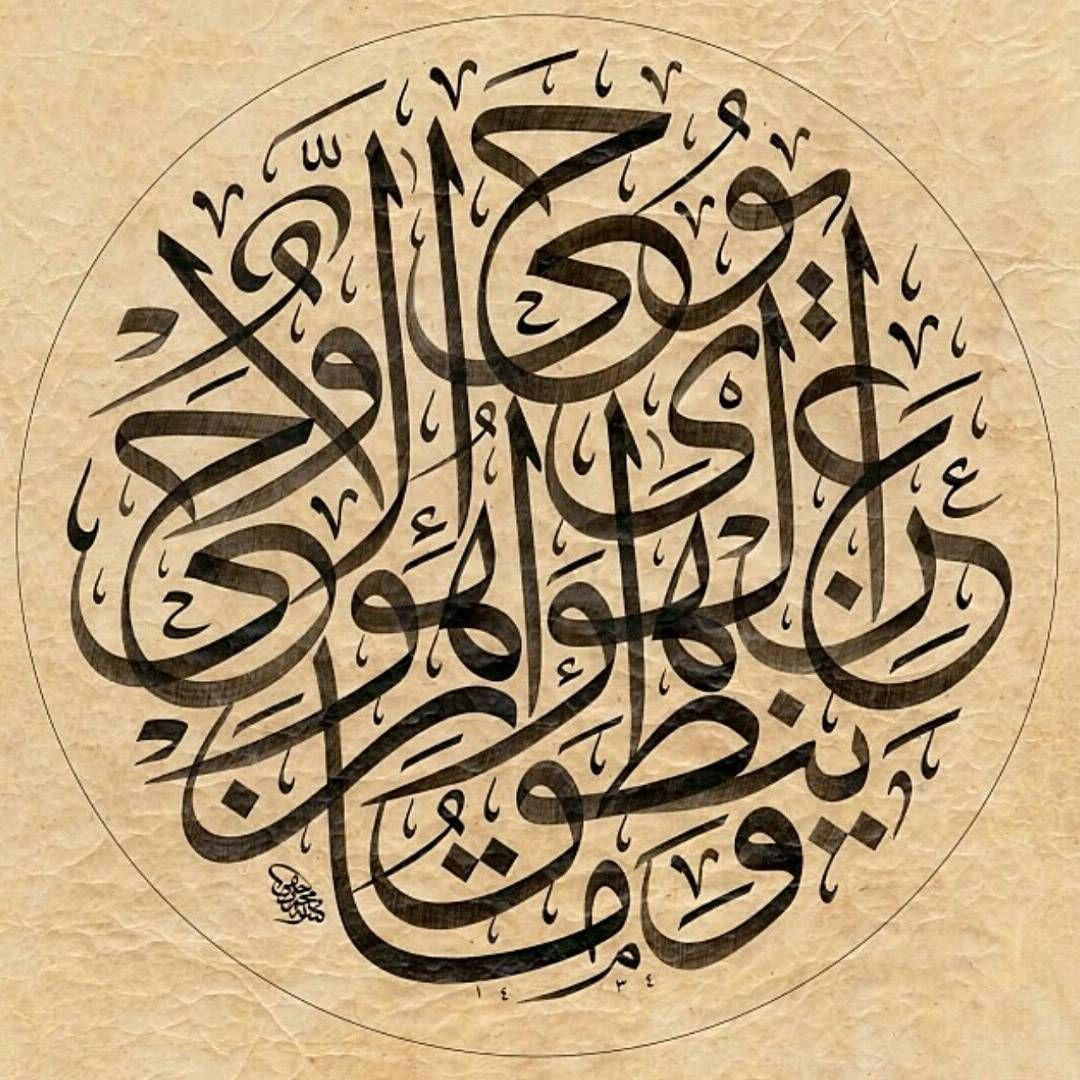 وَمَا يَنطِقُ عَنِ الْهَوَىٰ
إِنْ هُوَ إِلَّا وَحْيٌ يُوحَىٰ
١٤٣٤